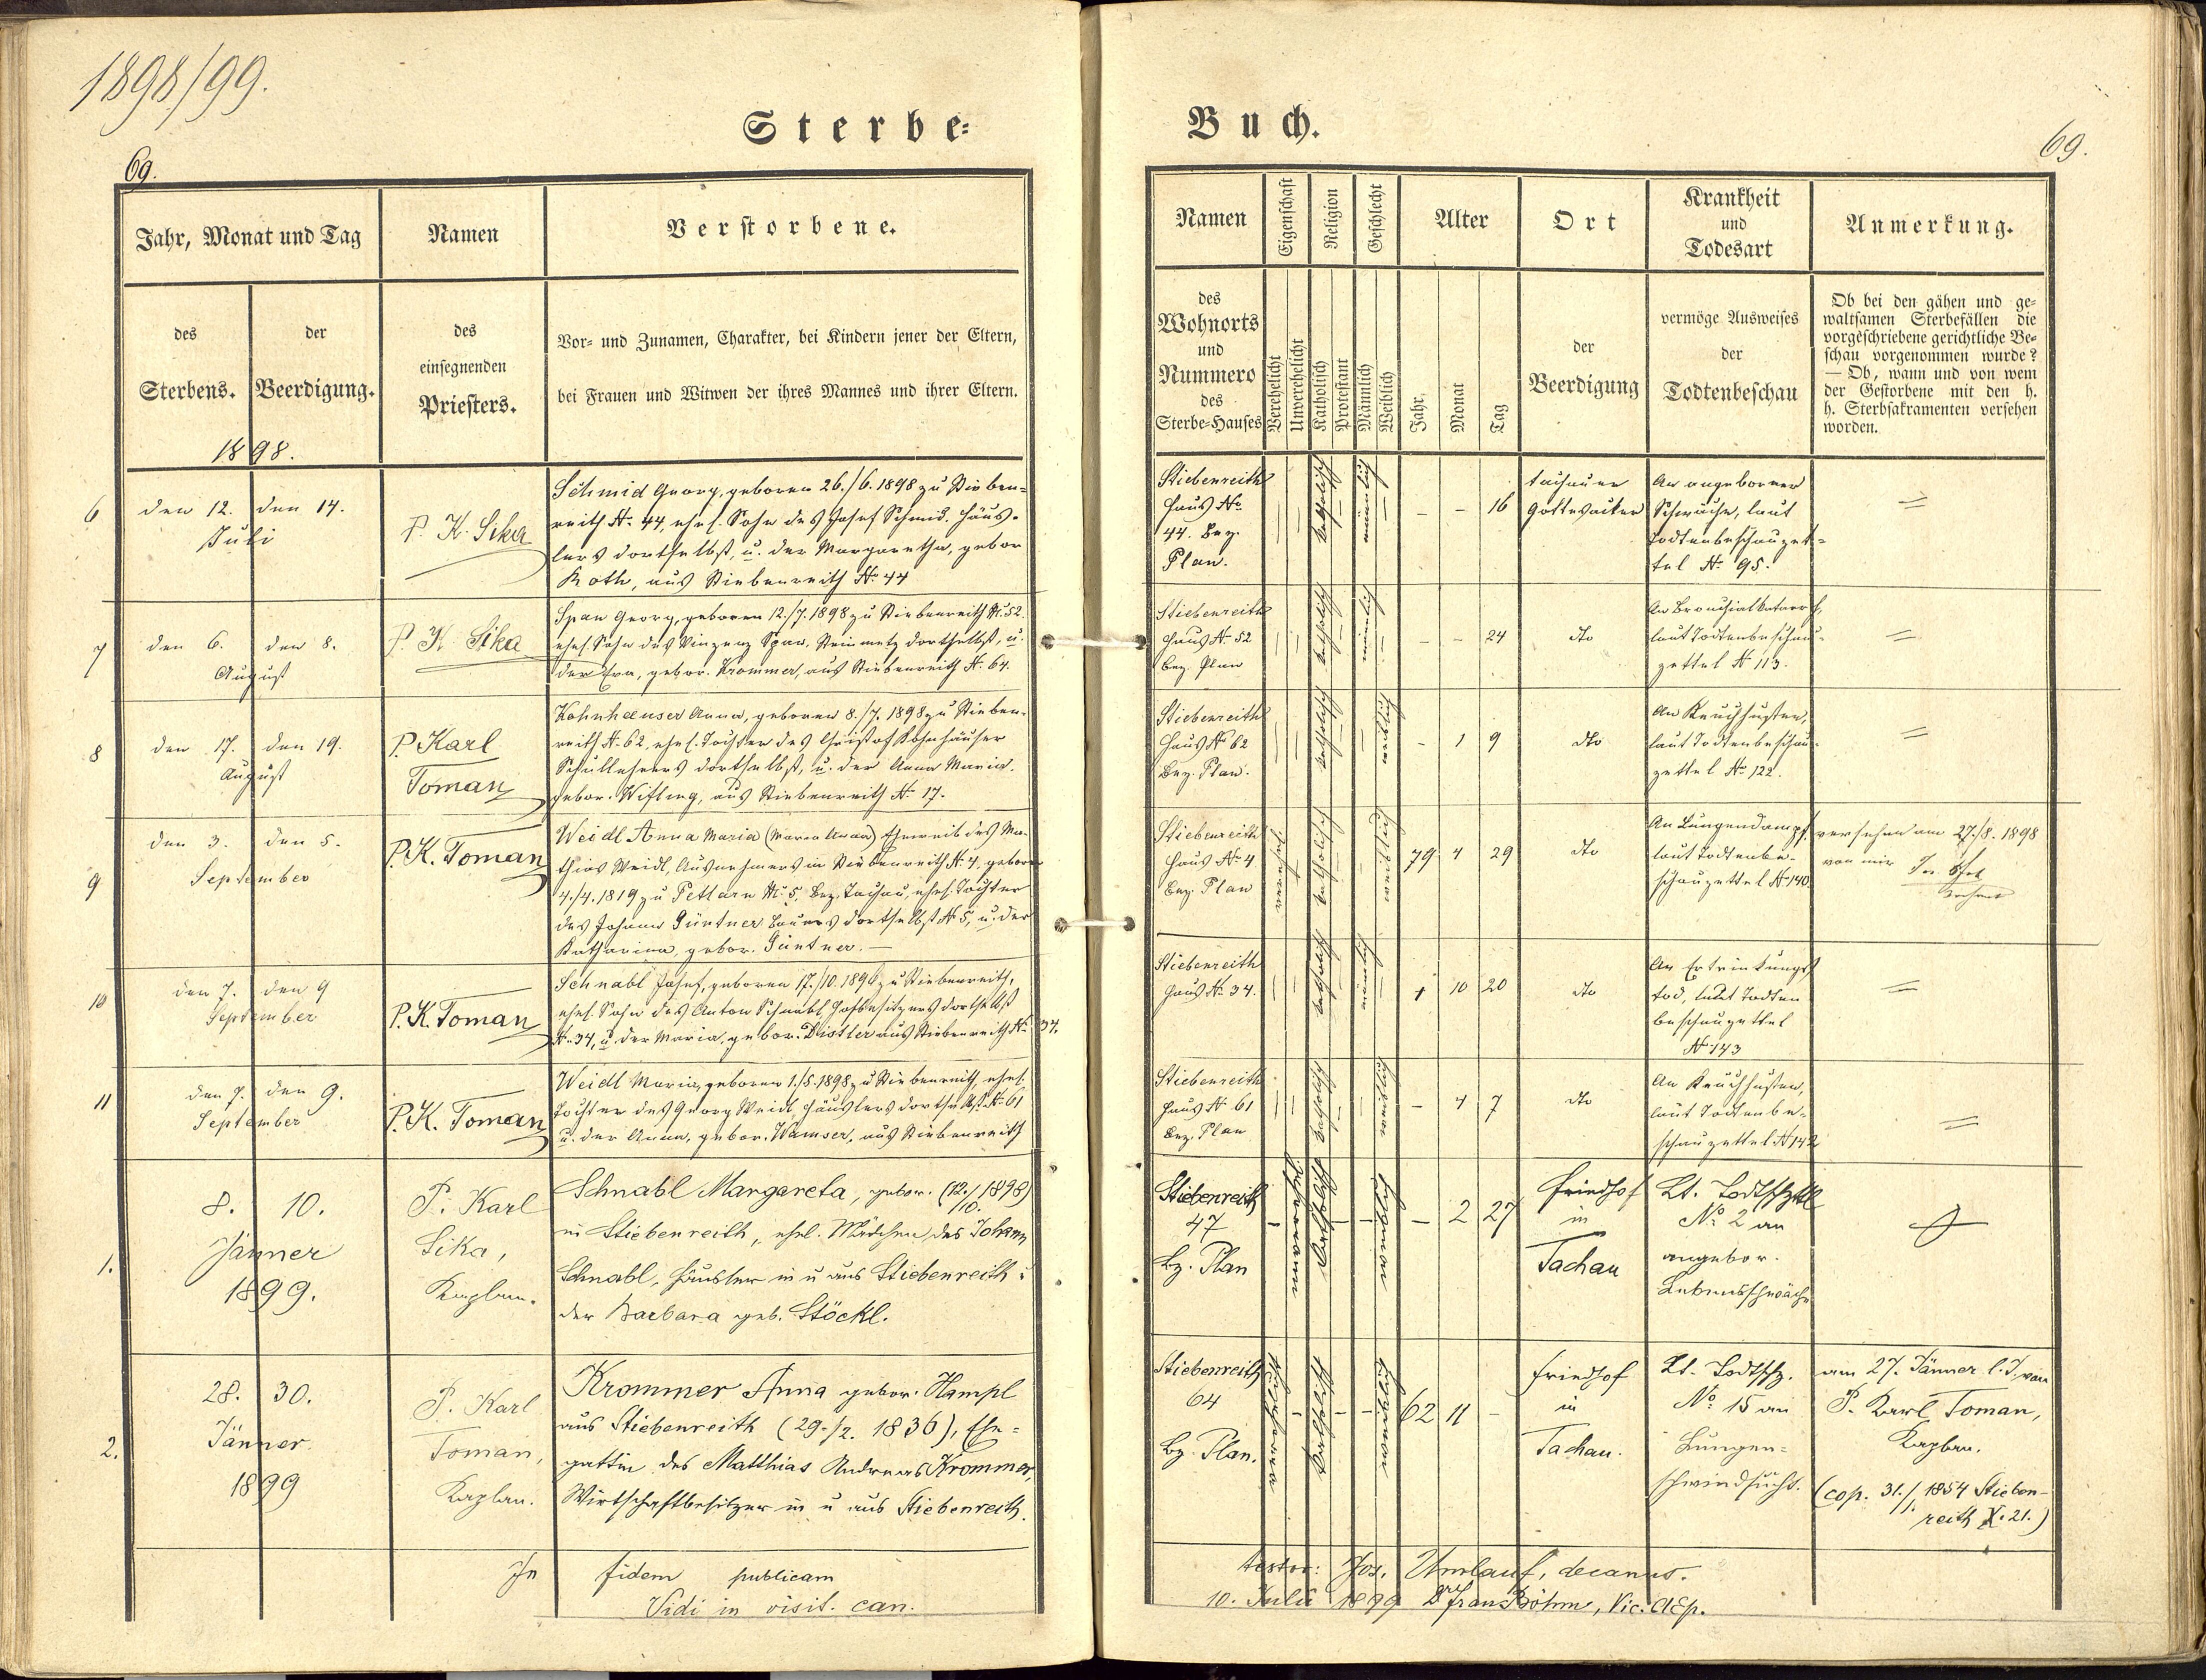 1898/99.
Sterbe-
69.
Jahr, Monat und Tag
Namen
Verstorbene.
des
Sterbens.
der
Beerdigung.
des
einsegnenden
Priesters.
Vor- und Zunamen, Charakter, bei Kindern jener der Eltern,
bei Frauen und Witwen der ihres Mannes und ihrer Eltern.
1898.
6
den 12. den 14.
Juli
P. K. Sika
Schmid Georg, geboren 26./6. 1898 zu Stieben-
reith No. 44, ehel. Sohn des Josef Schmid, Häus-
lers dortselbst, u. der Margaretha, gebor
Roth, aus Stiebenreith No 44
7
den 6. den 8.
August
P. K. Sika
Span Georg, geboren 12./7. 1898 zu Stiebenreith No. 52.
ehel. Sohn des Vinzenz Span, Steinmetz dortselbst, u.
der Eva, gebor. Krommer, aus Stiebenreith No. 64.
8
den 17. den 19.
August
P. Karl
Toman
Kohnhäuser Anna, geboren 8./7. 1898 zu Stieben-
reith No. 62, ehel. Tochter des Christof Kohnhäuser
Schullehrers dortselbst, u. der Anna Maria,
gebor. Wifling, aus Stiebenreith No 17.
9
den 3. den 5.
September
P. K. Toman
Weidl Anna Maria (Maria Anna) Eheweib des Ma-
thias Weidl, Ausnehmers in Stiebenreith No. 4, geboren
4./4. 1819 zu Pettlarn No. 5, Bez. Tachau, ehel. Tochter
des Johann Güntner Bauers dortselbst No 5, u. der
Katharina, gebor. Güntner. —
10
den 7. den 9
September
P. K. Toman
Schnabl Josef, geboren 17./10. 1896 zu Stiebenreith,
ehel. Sohn des Anton Schnabl, Hofbesitzers dortselbst
No. 34, u. der Maria, gebor. Distler aus Stiebenreith No. 34.
11
den 7. den 9.
September
P. K. Toman
Weidl Maria, geboren 1./5. 1898 zu Stiebenreith, ehel.
Tochter des Georg Weidl, Häuslers dortselbst No 61
u. der Anna, gebor. Wamser, aus Stiebenreith
1.
8. 10.
Jänner
1899.
P. Karl
Sika,
Kaplan.
Schnabl Margareta, gebor. (12./10. 1898)
in Stiebenreith, ehel. Mädchen des Johann
Schnabl, Häusler in u aus Stiebenreith u
der Barbara geb. Stöckl.
2.
28. 30.
Jänner
1899
P. Karl
Toman,
Kaplan.
Krommer Anna gebor. Hampl
aus Stiebenreith (29./2. 1836), Ehe-
gattin des Matthias Andreas Krommer,
Wirtschaftbesitzer in u aus Stiebenreith.
In fidem publicam
Vidi in visit. can.
Buch.
69.
Namen
Eigenschaft
Religion
Geschlecht
Alter
Ort
Krankheit
und
Todesart
Anmerkung.
des
Wohnorts
und
Nummero
des
Sterbe-Hauses
Verehelicht
Unverehelicht
Katholisch
Protestant
Männlich
Weiblich
Jahr
Monat
Tag
der
Beerdigung
vermöge Ausweises
der
Todtenbeschau
Ob bei den gähen und ge-
waltsamen Sterbefällen die
vorgeschriebene gerichtliche Be-
schau vorgenommen wurde?
— Ob, wann und von wem
der Gestorbene mit den h.
h. Sterbsakramenten versehen
worden.
Stiebenreith
Haus No
44. Bez.
Plan.
katholisch
männlich
– – 16
Tachauer
Gottesacker
An angeborner
Schwäche, laut
Todtenbeschauzet-
tel No. 95.
Stiebenreith
Haus No. 52
Bez. Plan
katholisch
männlich
– – 24
dto
An Bronchialkatarrh,
laut Todtenbeschau-
zettel No 113.
Stiebenreith
Haus No 62
Bez. Plan.
katholisch
– 1 9
dto
An Keuchhusten,
laut Todtenbeschau-
zettel No 122.
Stiebenreith
Haus No 4
Bez. Plan
katholisch
79 4 29
dto
An Lungendampf
laut Todtenbe-
schauzettel No 140.
versehen am 27./8. 1898
von mir
Stiebenreith
Haus No. 34.
katholisch
männlich
1 10 20
dto
An Ertrinkungs-
tod, laut Todten
beschauzettel
No 143
Stiebenreith
Haus No 61
Bez. Plan
katholisch
– 4 7
dto
An Keuchhusten,
laut Todtenbe-
schauzettel No 142
Stiebenreith
47
Bz. Plan
– 2 27
Friedhof
in
Tachau
Lt. Todtschztl
No. 2 an
angebor.
Lebensschwäche
Stiebenreith
64
Bz. Plan.
62 11 –
Friedhof
in
Tachau.
Lt. Todtschz.
No. 15 an
Lungen-
schwindsucht.
am 27. Jänner l. J. von
P. Karl Toman,
Kaplan.
(cop. 31./1. 1854 Stieben-
reith N. 21.)
testor: Jos. Umlauf, decanus.
10. Juli 1899 Dr Franz Böhm, Vic. AEp.